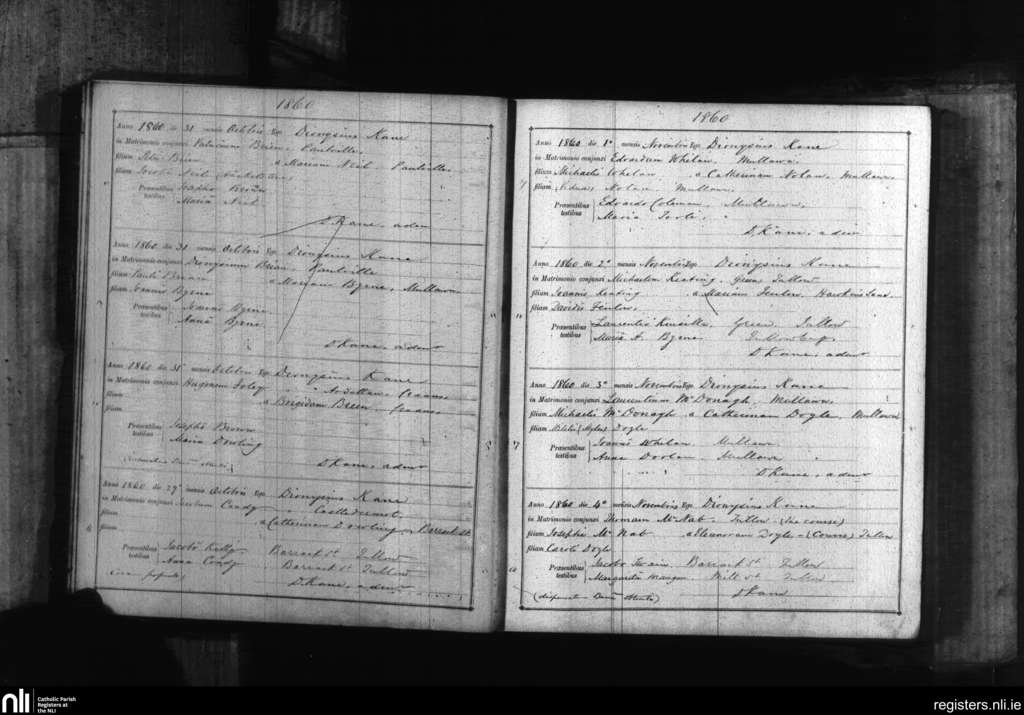 1860
Anno 1860 die 31 mensis Octobris Ego Dionysius Kane
in Matrimonio conjunxi Patricium Brien Paulville
filium Petri Brien a Mariam Neil Paulville
filiam Jacobi Neil
Præsentibus testibus Josepho
Maria Neil
D Kane, adm
Anno 1860 die 31 mensis Octobris Ego Dionysius Kane
in Matrimonio conjunxi Dionysium Brien Paulville
filium Pauli Brien a Mariam Byrne, Mullawn
filiam Joannis Byrne
Præsentibus testibus Byrne
Anna Byrne
D Kane, adm
Anno 1860 die 31 mensis Octobris Ego Dionysius Kane
in Matrimonio conjunxi Hugonem Foley
filium a Brigidam Breen
filiam
Præsentibus testibus Josepho Brown
Maria Dowling
D Kane, adm
Anno 1860 die 27 mensis Octobris Ego Dionysius Kane
in Matrimonio conjunxi Condy Castledermot
filium a Catherinam Dowling Barrack St
filiam
Præsentibus testibus Jacobo Kelly Barrack St Tullow
Anna Condy Barrack St Tullow
D Kane, adm
1860
Anno 1860 die 1o mensis Novembris Ego Dionysius Kane
in Matrimonio conjunxi Edvardum Whelan, Mullawn
filium Michaelis Whelan, a Catherinam Nolan, Mullawn
filiam Nolan Mullawn
Præsentibus testibus Edvardo Coleman, Mullawn
Maria Toole
D, Kane, adm
Anno 1860 die 2o mensis Novembris Ego Dionysius Kane
in Matrimonio conjunxi Michaelem Keating, Green Tullow
filium Joannis Keating a Mariam Fenlon, Hawkins Lane
filiam Davidis Fenlon
Præsentibus testibus Laurentio Kinsella, Green Tullow
Maria A. Byrne
D Kane, adm
Anno 1860 die 3o mensis Novembris Ego Dionysius Kane
in Matrimonio conjunxi Laurentium McDonagh, Mullawn
filium Michaelis McDonagh a Catherinam Doyle, Mullawn
filiam (Myles) Doyle
Præsentibus testibus Joanne Whelan Mullawn
Anna Doolan Mullawn
D Kane, adm
Anno 1860 die 4o mensis Novembris Ego Dionysius Kane
in Matrimonio conjunxi Thomam McNab Tullow
filium Josephi McNab a Eleanoram Doyle Tullow
filiam Caroli Doyle
Præsentibus testibus Jacobo Barrack St Tullow
Margarita Mangan Mill St Tullow
D Kane
nli
Catholic Parish
Registers at
the NLI
registers.nli.ie